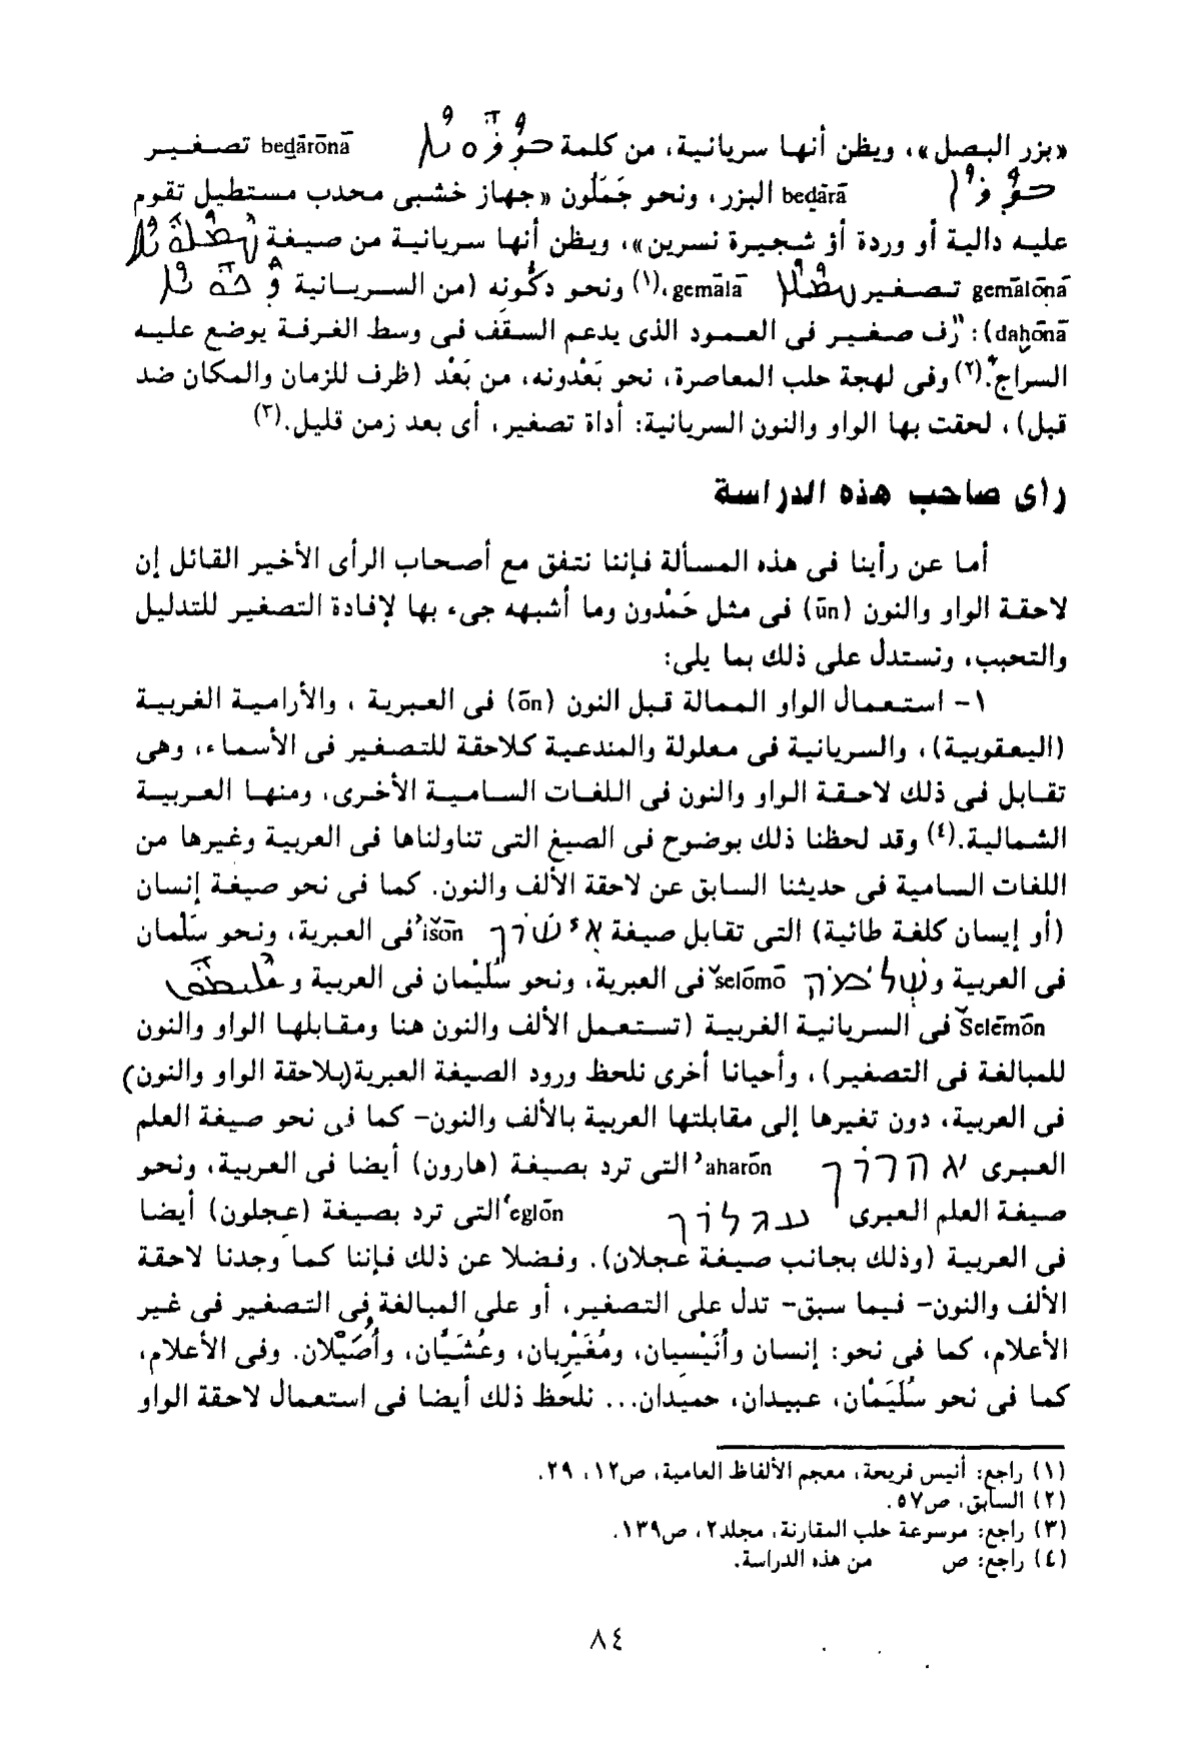 «بزر البصل»، ويظن أنها سريانية، من كلمة beḏārōnā تصغير
beḏārā البزر، ونحو جَمَلُون «جهاز خشبى محدب مستطيل تقوم
عليه دالية أو وردة أؤ شجيرة نسرين»، ويظن أنها سريانية من صيغة
gemālōnā تصغير gemālā،(١) ونحو دكُّونه (من السريانية
daḥōnā): "رَف صغير فى العمود الذى يدعم السقف فى وسط الغرفة يوضع عليه
السراج".(٢) وفى لهجة حلب المعاصرة، نحو بَعْدونه، من بَعْد (ظرف للزمان والمكان ضد
قبل)، لحقت بها الواو والنون السريانية: أداة تصغير، أى بعد زمن قليل.(٣)
رأى صاحب هذه الدراسة
أما عن رأينا فى هذه المسألة فإننا نتفق مع أصحاب الرأى الأخير القائل إن
لاحقة الواو والنون (ūn) فى مثل حَمْدون وما أشبهه جىء بها لإفادة التصغير للتدليل
والتحبب، ونستدل على ذلك بما يلى:
١- استعمال الواو الممالة قبل النون (ōn) فى العبرية ، والأرامية الغربية
(اليعقوبية)، والسريانية فى معلولة والمندعية كلاحقة للتصغير فى الأسماء، وهى
تقابل فى ذلك لاحقة الواو والنون فى اللغات السامية الأخرى، ومنها العربية
الشمالية.(٤) وقد لحظنا ذلك بوضوح فى الصيغ التى تناولناها فى العربية وغيرها من
اللغات السامية فى حديثنا السابق عن لاحقة الألف والنون. كما فى نحو صيغة إنسان
(أو إيسان كلغة طائية) التى تقابل صيغة אִישׁוֹן ʾišōn فى العبرية، ونحو سَلْمان
فى العربية و שְׁלֹמֹה šelōmō فى العبرية، ونحو سُلَيْمان فى العربية و
Šelēmōn فى السريانية الغربية (تستعمل الألف والنون هنا ومقابلها الواو والنون
للمبالغة فى التصغير)، وأحيانا أخرى نلحظ ورود الصيغة العبرية(بلاحقة الواو والنون)
فى العربية، دون تغيرها إلى مقابلتها العربية بالألف والنون- كما فى نحو صيغة العلم
العبرى אהרוֹן ʾaharōn التى ترد بصيغة (هارون) أيضا فى العربية، ونحو
صيغة العلم العبرى עגלוֹן ʿeglōn التى ترد بصيغة (عجلون) أيضا
فى العربية (وذلك بجانب صيغة عَجلان). وفضلا عن ذلك فإننا كما وجدنا لاحقة
الألف والنون- فيما سبق- تدل على التصغير، أو على المبالغة فى التصغير فى غير
الأعلام، كما فى نحو: إنسان وأُنَيْسيان، ومُغَيْرِبان، وعُشَيَّان، وأُصَيْلان. وفى الأعلام،
كما فى نحو سُلَيَمْان، عبيدان، حميدان... نلحَظ ذلك أيضا فى استعمال لاحقة الواو
(١) راجع: أنيس فريحة، معجم الألفاظ العامية، ص١٢، ٢٩.
(٢) السابق، ص٥٧.
(٣) راجع: موسوعة حلب المقارنة، مجلد٢، ص١٣٩.
(٤) راجع: ص من هذه الدراسة.
٨٤